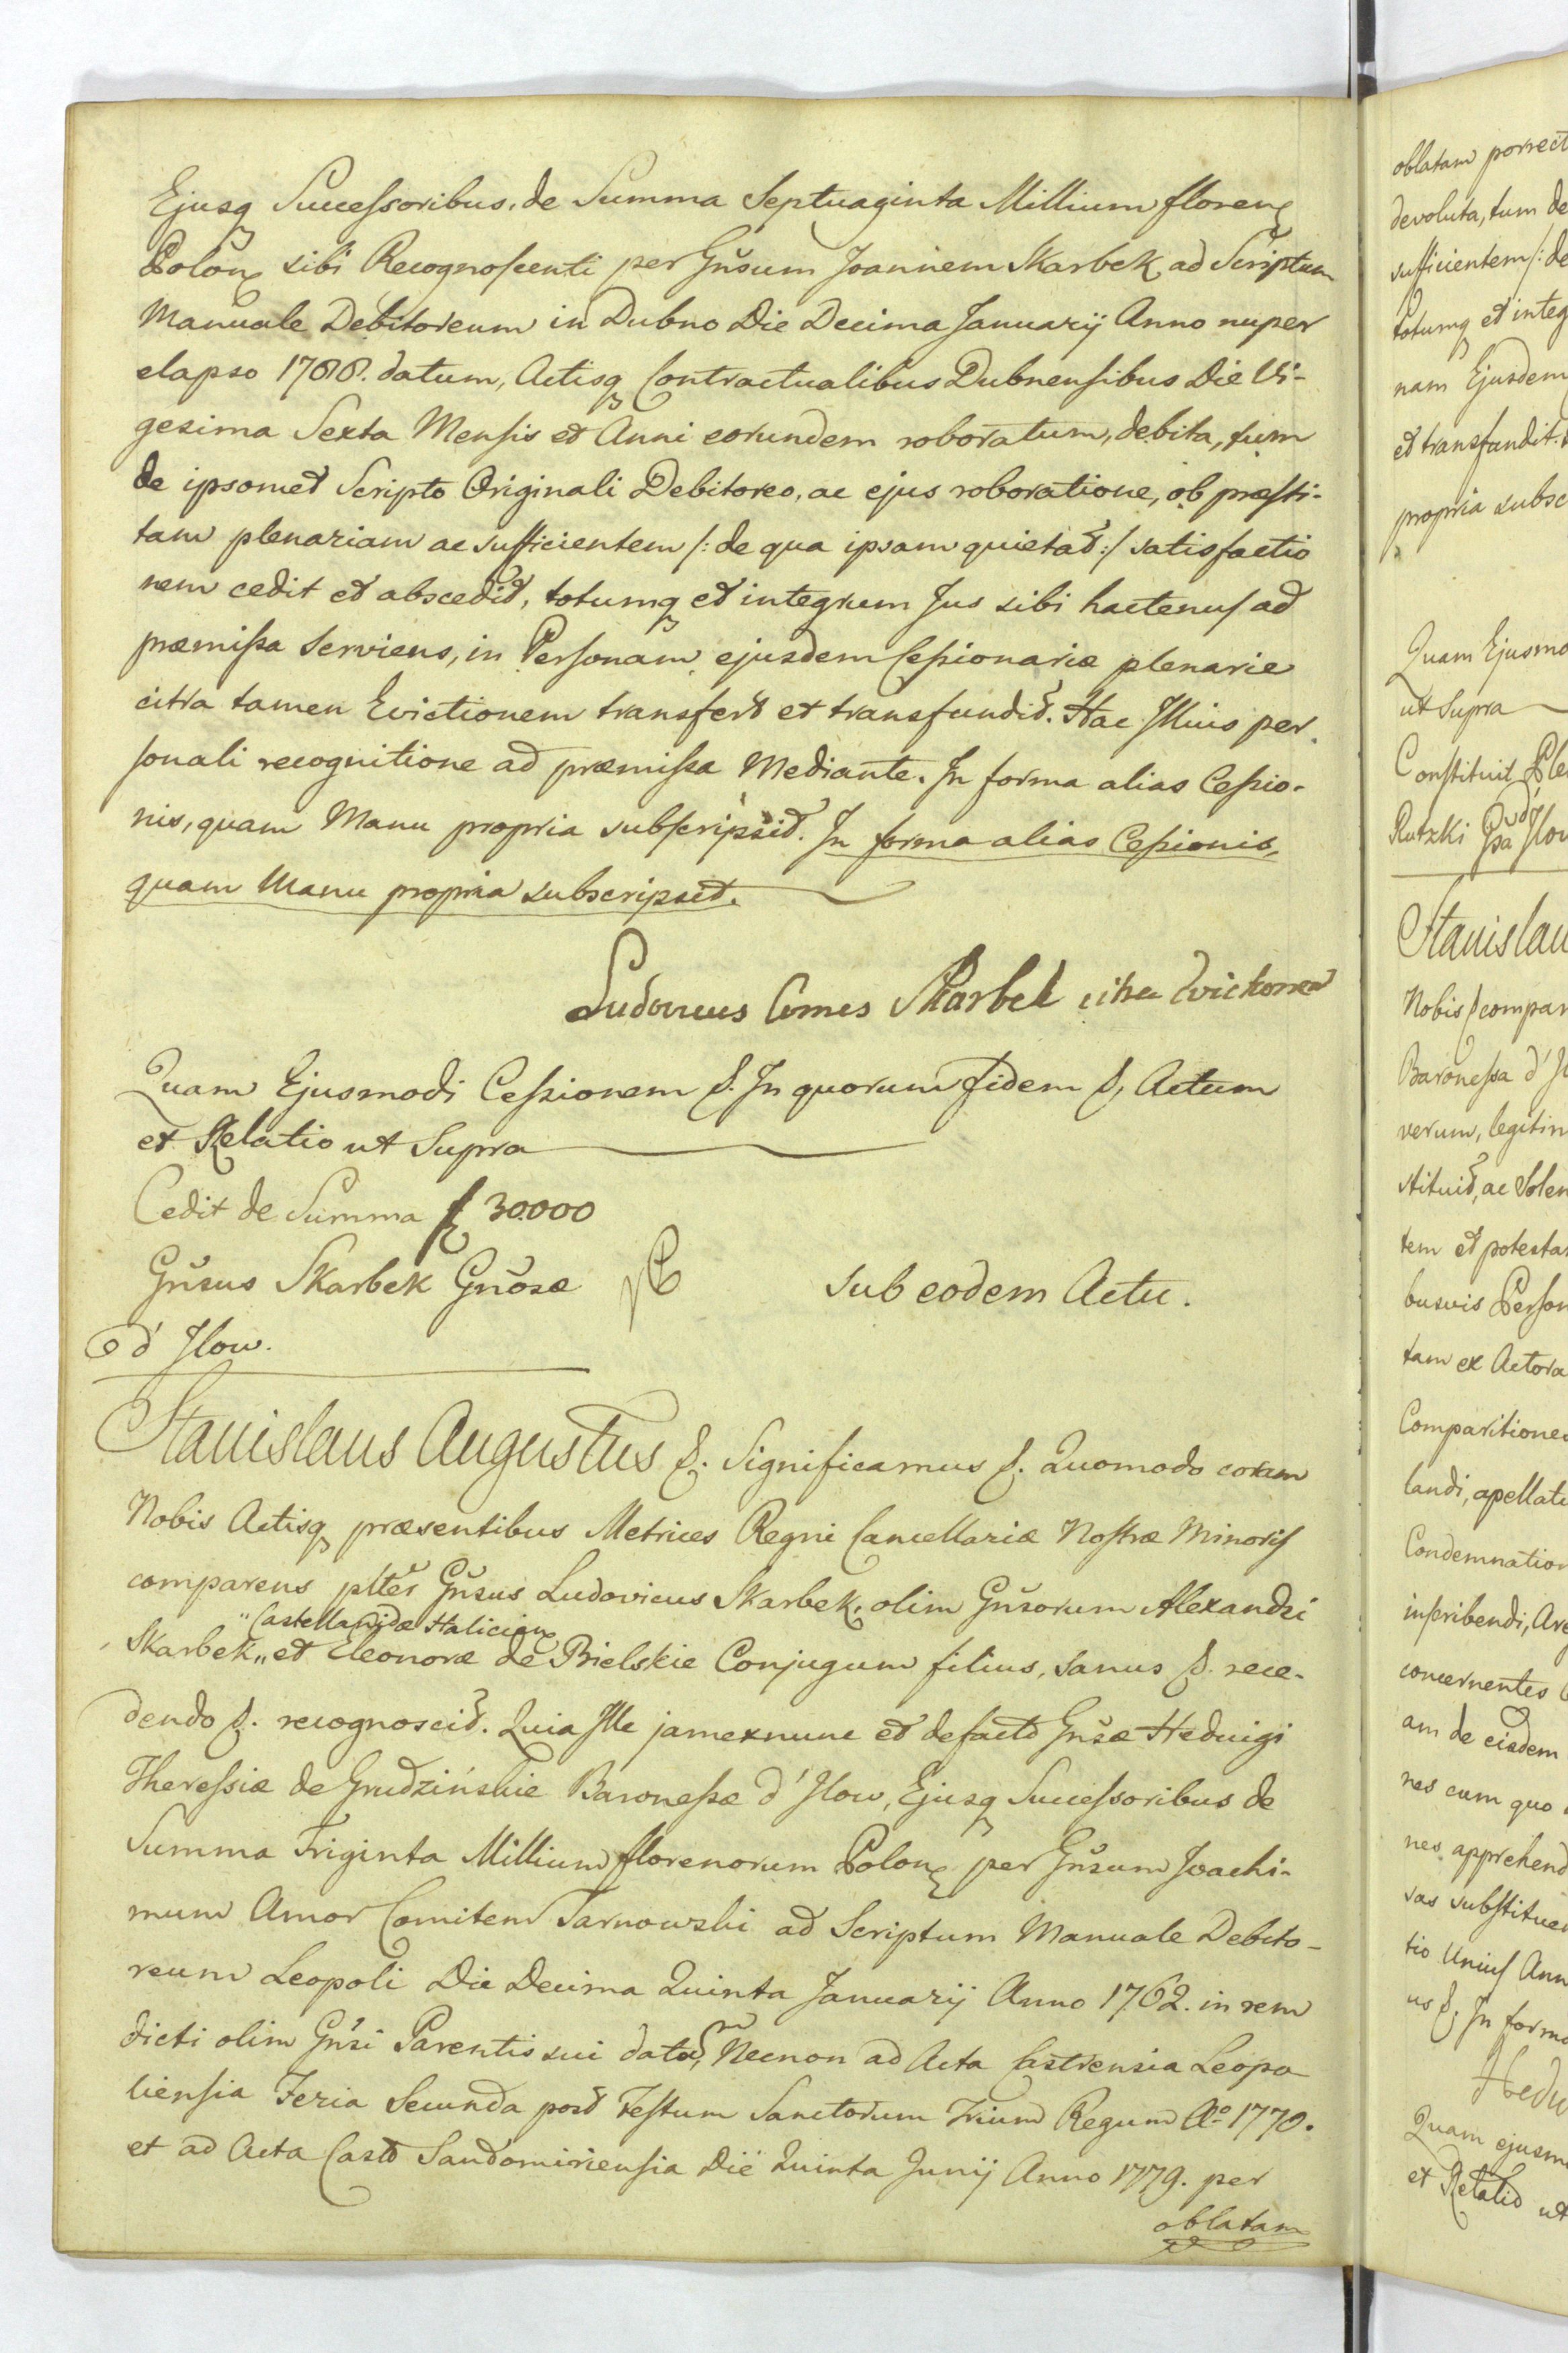 Ejusq Successoribus, de Summa Septuaginta Millium floren
Polon sibi Recognoscenti per Gnsum Joannem Skarbek, ad Scriptum
Manuale Debitoreum in Dubno Die Decima Januarij Anno nuper
elapso 1788. datum, Actisq Contractualibus Dubnensibus Die Vi-
gesima Sexta Mensis et Anni eorundem roboratum, debita, tum
de ipsomet Scripto Originali Debitoreo, ac ejus roboratione, ob præsti-
tam plenariam ac sufficientem /: de qua ipsam quietat :/ satisfactio
nem cedit et abscedit, totumq et integrum Jus sibi hactenus ad
præmissa Serviens, in Personam ejusdem Cessionariæ plenarie
citra tamen Evictionem transfert et transfundit. Hac Illius per-
sonali recognitione ad præmissa Mediante. In forma alias Cessio-
nis, quam Manu propria subscripsit. In forma alias Cessionis,
quam Manu propria subscripsit.
Ludovicus Comes Skarbek citra Evictionem
Quam Ejusmodi Cessionem &. In quorum fidem &, Actum
et Relatio ut Supra
Cedit de Summa f 30.000
Gnsus Skarbek Gnosæ
d' Ilow.
Sub eodem Actu.
Stanislaus Augustus &. Significamus &. Quomodo coram
Nobis Actisq præsentibus Metrices Regni Cancellariæ Nostræ Minoris
comparens plter Gnsus Ludovicus Skarbek, olim Gnsorum Alexandri
Castellanidæ Halicien
Skarbek,, et Eleonoræ de Bielskie Conjugum filius, sanus &. rece-
dendo &. recognoscit. Quia Ille jamexnunc et defacto Gnsæ Heduigi
Theressiæ de Grudzińskie Baronessæ d' Ilow, Ejusq Successoribus de
Summa Triginta Millium florenorum Polon per Gnsum Joachi-
mum Amor Comitem Tarnowski ad Scriptum Manuale Debito-
reum Leopoli Die Decima Quinta Januarij Anno 1762. in rem
dicti olim Gnsi Parentis sui datum, Necnon ad Acta Castrensia Leopo
liensia Feria Secunda post Festum Sanctorum Trium Regum Ao 1770.
et ad Acta Cast Sandomiriensia Die Quinta Junij Anno 1779. per
oblatam
oblatam porrect
devoluta, tum de
sufficientem /: de
totumq et integ
nam Ejusdem
et transfundit.
propria subsc
Quam Ejusmo
ut Supra
Constituit Ple
Rutzki
Stanislau
Nobis & compar
Baronessa d' Il
verum, legitim
stituit, ac Solen
tem et potesta
busvis Person
tam ex Actora
Comparitiones
landi, apellat
Condemnation
inscribendi, Are
concernentes
am de eisdem
nes cum quo
nes apprehend
sas substituen
tio Unius Ann
us &, In forma
Hedw
Quam ejusm
et Relatio ut